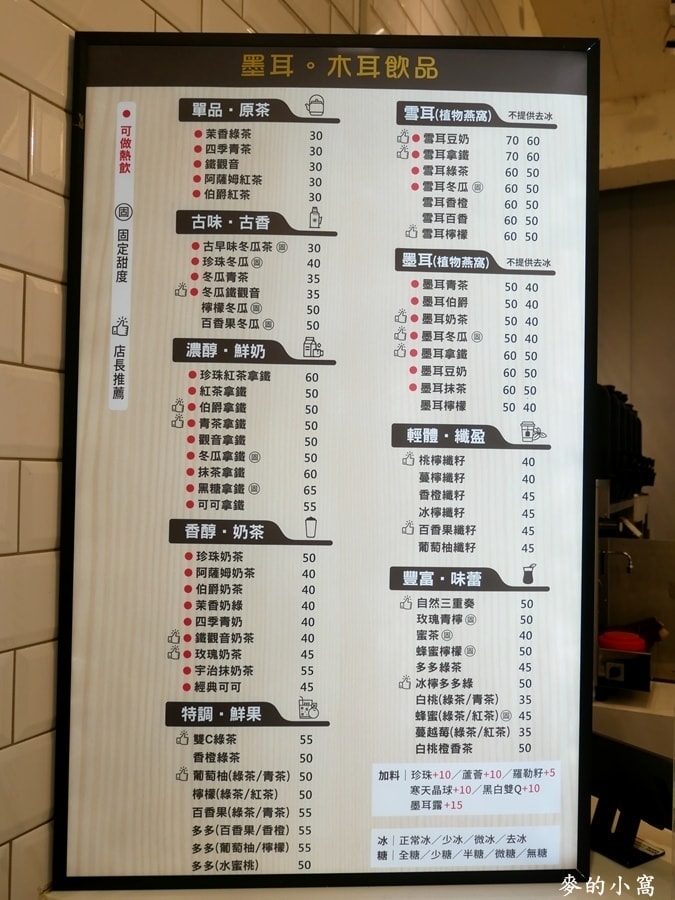 墨耳。木耳飲品
● 可做熱飲
固 固定甜度
店長推薦
單品・原茶
● 茉香綠茶 30
● 四季青茶 30
● 鐵觀音 30
● 阿薩姆紅茶 30
● 伯爵紅茶 30
古味・古香
● 古早味冬瓜茶 固 30
● 珍珠冬瓜 固 40
● 冬瓜青茶 35
● 冬瓜鐵觀音 35
檸檬冬瓜 固 50
百香果冬瓜 固 50
濃醇・鮮奶
● 珍珠紅茶拿鐵 60
● 紅茶拿鐵 50
● 伯爵拿鐵 50
● 青茶拿鐵 50
● 觀音拿鐵 50
● 冬瓜拿鐵 固 50
● 抹茶拿鐵 60
● 黑糖拿鐵 固 65
● 可可拿鐵 55
香醇・奶茶
● 珍珠奶茶 50
● 阿薩姆奶茶 40
● 伯爵奶茶 40
● 茉香奶綠 40
● 四季青奶 40
● 鐵觀音奶茶 40
● 玫瑰奶茶 45
● 宇治抹奶茶 55
● 經典可可 45
特調・鮮果
雙C綠茶 55
香橙綠茶 50
葡萄柚(綠茶/青茶) 50
檸檬(綠茶/紅茶) 50
百香果(綠茶/青茶) 55
多多(百香果/香橙) 55
多多(葡萄柚/檸檬) 55
多多(水蜜桃) 50
雪耳(植物燕窩) 不提供去冰
● 雪耳豆奶 70 60
● 雪耳拿鐵 70 60
● 雪耳綠茶 60 50
● 雪耳冬瓜 固 60 50
雪耳香橙 60 50
雪耳百香 60 50
雪耳檸檬 60 50
墨耳(植物燕窩) 不提供去冰
● 墨耳青茶 50 40
● 墨耳伯爵 50 40
● 墨耳奶茶 50 40
● 墨耳冬瓜 固 50 40
● 墨耳拿鐵 60 50
● 墨耳豆奶 60 50
● 墨耳抹茶 60 50
墨耳檸檬 50 40
輕體・纖盈
桃檸纖籽 40
蔓檸纖籽 40
香橙纖籽 45
冰檸纖籽 45
百香果纖籽 45
葡萄柚纖籽 45
豐富・味蕾
自然三重奏 50
玫瑰青檸 固 50
蜜茶 固 40
蜂蜜檸檬 固 50
多多綠茶 45
冰檸多多綠 50
白桃(綠茶/青茶) 35
蜂蜜(綠茶/紅茶) 固 45
蔓越莓(綠茶/紅茶) 35
白桃橙香茶 50
加料|珍珠+10／蘆薈+10／羅勒籽+5
寒天晶球+10／黑白雙Q+10
墨耳露+15
冰|正常冰／少冰／微冰／去冰
糖|全糖／少糖／半糖／微糖／無糖
麥的小窩